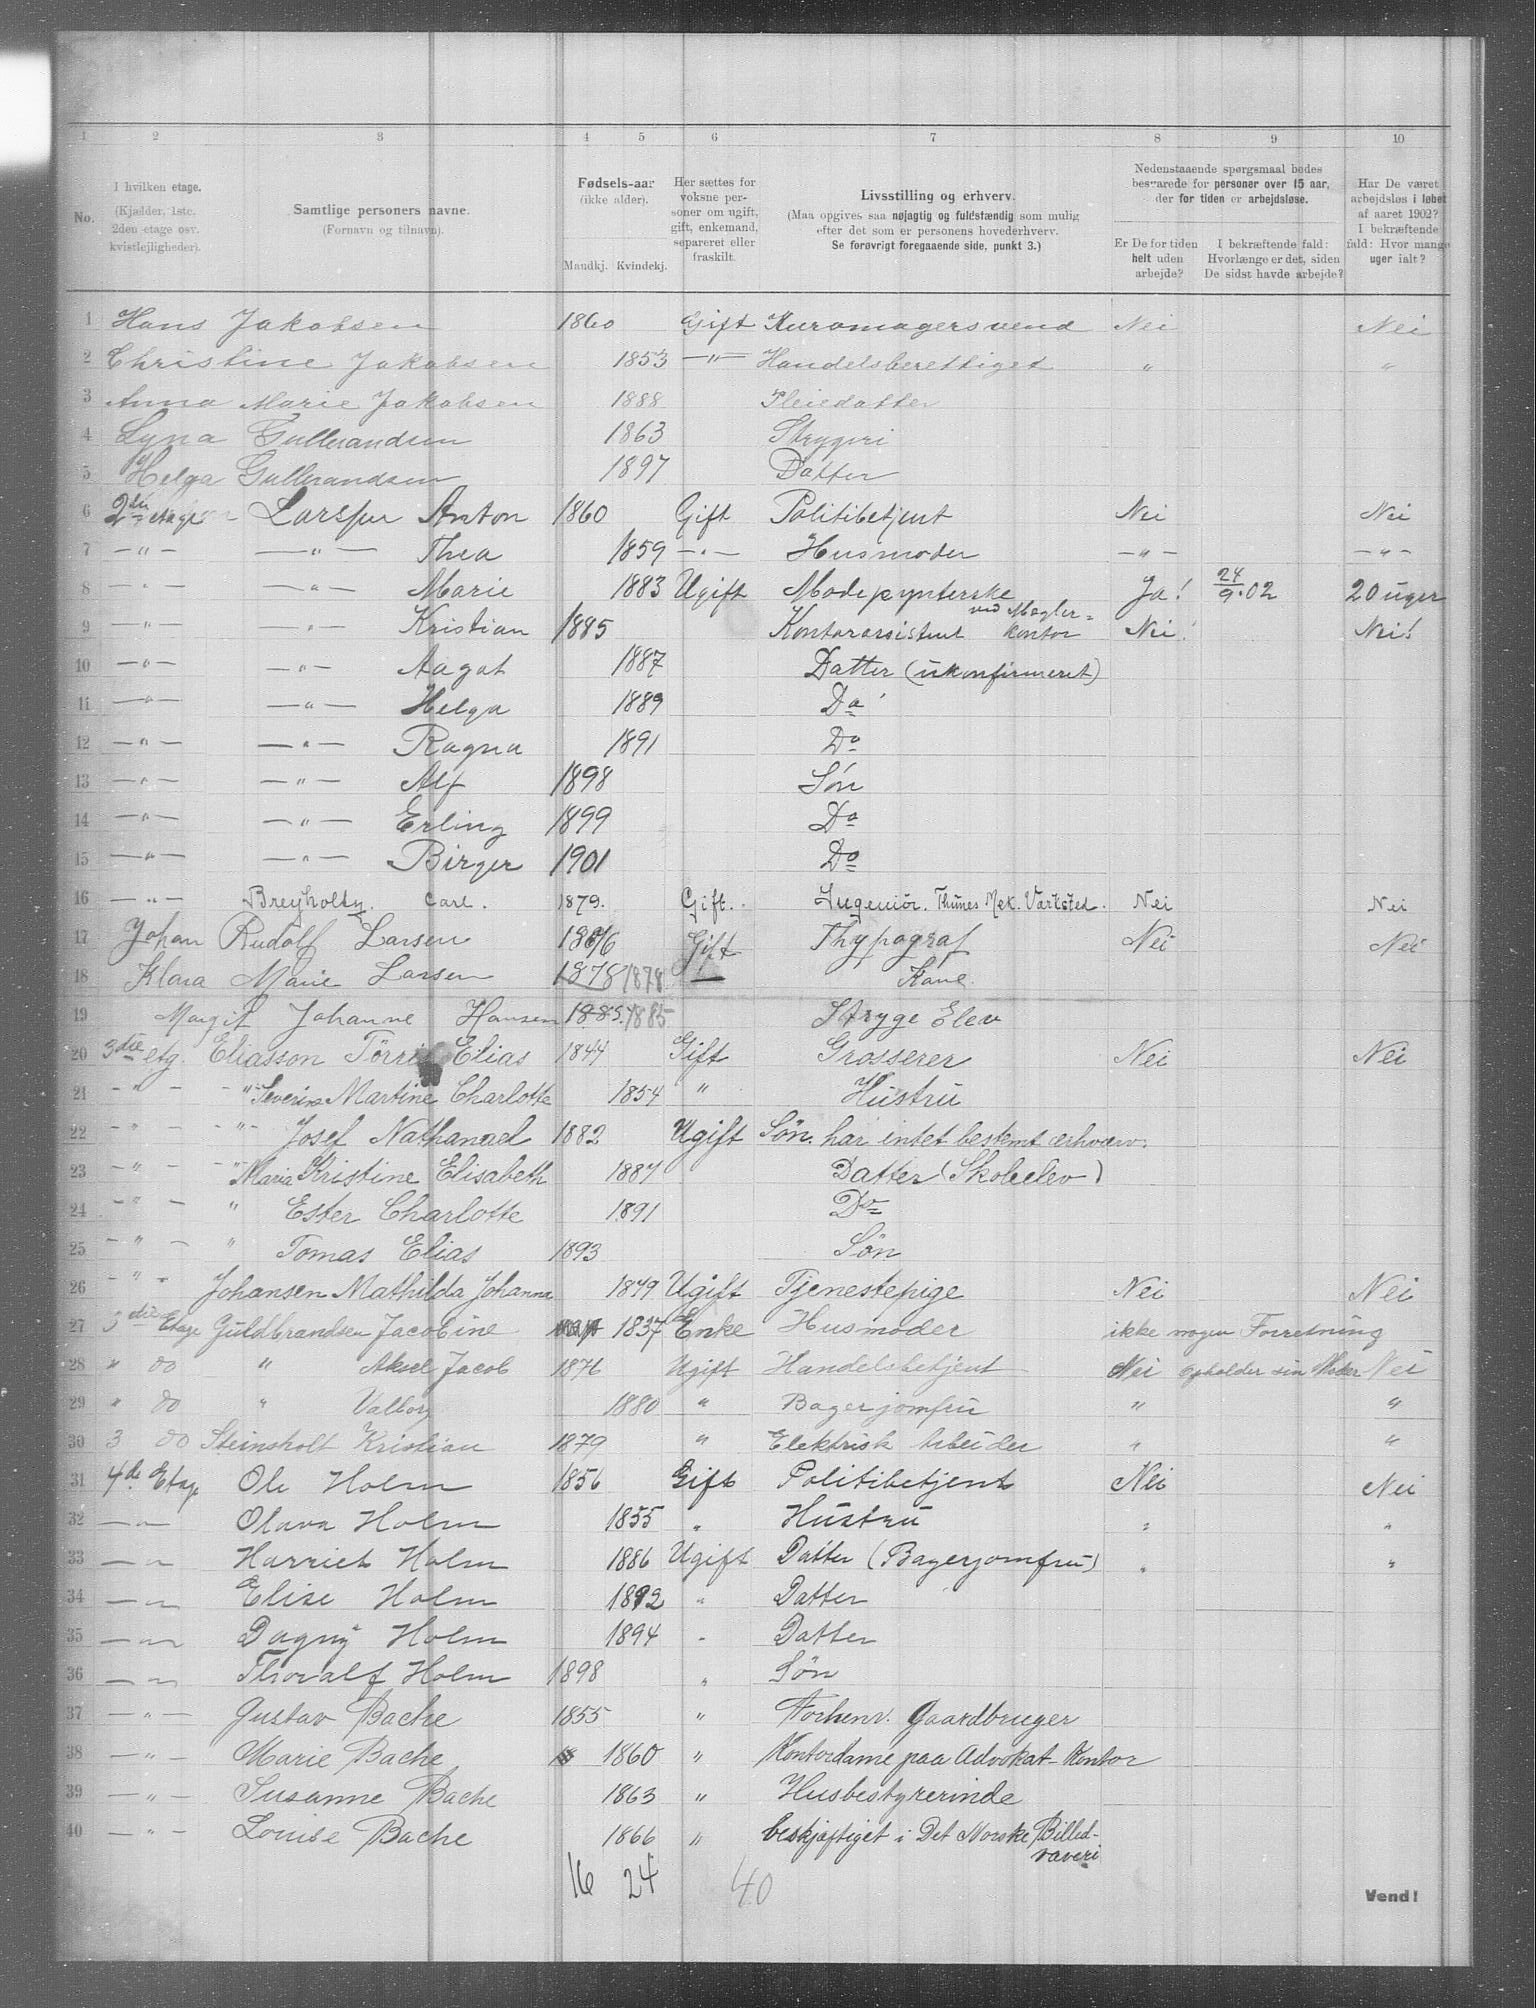 1 2 3 4 5 6 7 8 9 10
No.
I hvilken etage.
(Kjælder, 1ste.
2den etage osv.
kvistlejligheder).
Samtlige personers navne.
(Fornavn og tilnavn).
Fødsels-aar
(ikke alder).
Mandkj. Kvindekj.
Her sættes for
voksne per-
soner om ugift,
gift, enkemand,
separeret eller
fraskilt.
Livsstilling og erhverv.
(Maa opgives saa nøjagtig og fuldstændig som mulig
efter det som er personens hovederhverv.
Se forøvrigt foregaaende side, punkt 3.)
Nedenstaaende spørgsmaal bedes
besvarede for personer over 15 aar,
der for tiden er arbejdsløse.
Er De for tiden
helt uden
arbejde?
I bekræftende fald:
Hvorlænge er det, siden
De sidst havde arbejde?
Har De været
arbejdsløs i løbet
af aaret 1902?
I bekræftende
fald: Hvor mange
uger ialt?
1 Hans Jakobsen 1860 Gift Kuromagersvend Nei Nei
2 Christine Jakobsen 1853 —"— Handelsberettiget " "
3 Anna Marie Jakobsen 1888 Pleiedatter
4 Lyna Gulbrandsen 1863 Strygeri
5 Helga Gulbrandsen 1897 Datter
6 2den etage Larsen Anton 1860 Gift Politibetjent Nei Nei
7 —"— —"— Thea 1859 —"— Husmoder —"— —"—
8 —"— —"— Marie 1883 Ugift Modepynterske Ja! 24/9.02 20 uger
9 —"— —"— Kristian 1885 Kontorassistent ved Mægler=kontor Nei! Nei!
10 —"— —"— Aagot 1887 Datter (ukonfirmeret)
11 —"— —"— Helga 1889 Do
12 —"— —"— Ragna 1891 Do
13 —"— —"— Alf 1898 Søn
14 —"— —"— Erling 1899 Do
15 —"— —"— Birger 1901 Do
16 —"— Breyholtz. Carl. 1879. Gift. Ingeniør. Thunes Mek. Værksted. Nei Nei
17 Johan Rudolf Larsen Gift Thypograf Nei Nei
18 Klara Marie Larsen 1878 1878 — Kone
19 Margit Johanne Hansen 1885 1885 Stryge Elev
20 3die etg. Eliasson Tørris Elias 1844 Gift Grosserer Nei Nei
21 " " Severine Martine Charlotte 1854 " Hustru
22 " " Josef Nathanael 1882 Ugift Søn. har intet bestemt erhværv.
23 " " Maria Kristine Elisabeth 1887 Datter (Skoleelev)
24 " " Ester Charlotte 1891 Do
25 " " Tomas Elias 1893 Søn
26 " Johansen Mathilda Johanna 1849 Ugift Tjenestepige Nei Nei
27 3die Etage Guldbrandsen Jacobine 1837 Enke Husmoder ikke nogen Forretning
28 " do " Aksel Jacob 1876 Ugift Handelsbetjent Nei opholder sin Moder Nei
29 " do " Valborg 1880 " Bagerjomfru " "
30 3 do Steinsholt Kristian 1879 " Elektrisk Arbeider " "
31 4de Etage Ole Holm 1856 Gift Politibetjent Nei Nei
32 —"— Olava Holm 1855 " Hustru " "
33 —"— Harriet Holm 1886 Ugift Datter (Bagerjomfru) " "
34 —"— Elise Holm 1892 " Datter
35 —"— Dagny Holm 1894 " Datter
36 —"— Thoralf Holm 1898 " Søn
37 —"— Gustav Bache 1855 " Forhenv. Gaardbruger
38 —"— Marie Bache 1860 " Kontordame paa Advokat-Kontor
39 —"— Susanne Bache 1863 " Husbestyrerinde
40 —"— Louise Bache 1866 " beskjæftiget i Det Norske Billed-
væveri
16 24 40
Vend!